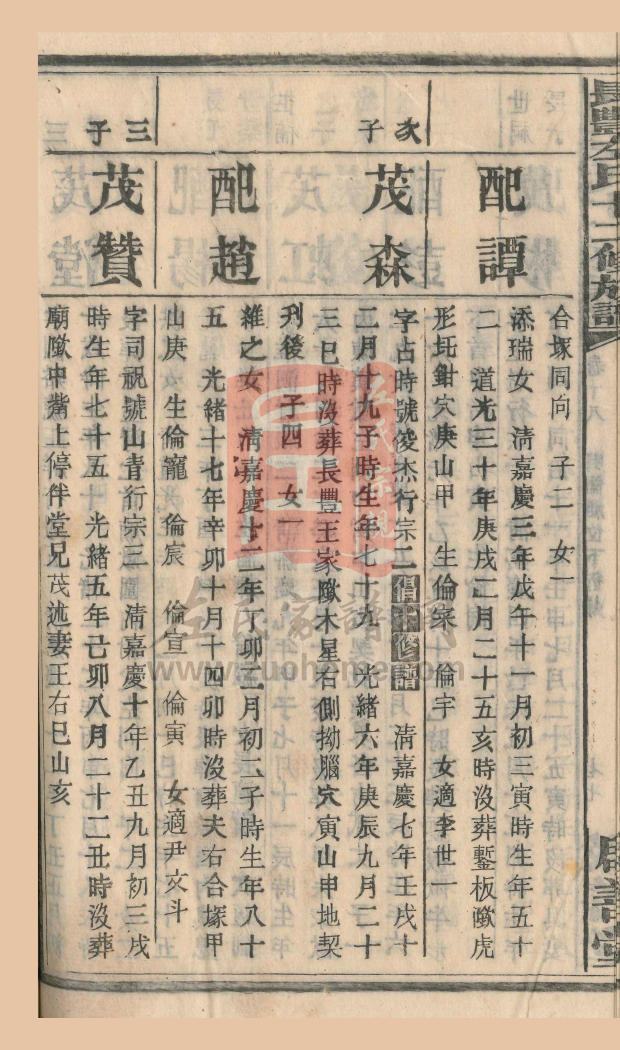 長豐左氏十二修族譜
合塚同向 子二 女一
配譚
添瑞女 清嘉慶三年戊午十一月初三寅時生年五十
二 道光三十年庚戌二月二十五亥時沒葬鏨板䧢虎
形坵鉗穴庚山甲 生倫家 倫宇 女適李世一
次子
茂森
字占時號俊杰行宗二倡十修譜 清嘉慶七年壬戌十
二月十九子時生年七十九 光緒六年庚辰九月二十
三巳時沒葬長豐王家䧢木星右側拗腦穴寅山申地契
列後 子四 女一
配趙
維之女 清嘉慶十二年丁卯二月初二子時生年八十
五 光緒十七年辛卯十月十四卯時沒葬夫右合塚甲
山庚 女 生倫寵 倫宸 倫宣 倫寅 女適尹文斗
三子
茂贊
字司祝號山青行宗三 清嘉慶十年乙丑九月初三戌
時生年七十五 光緒五年己卯八月二十二丑時沒葬
廟䧢中嘴上停伴堂兄茂述妻王右巳山亥
左氏家譜網
www.zuohome.com